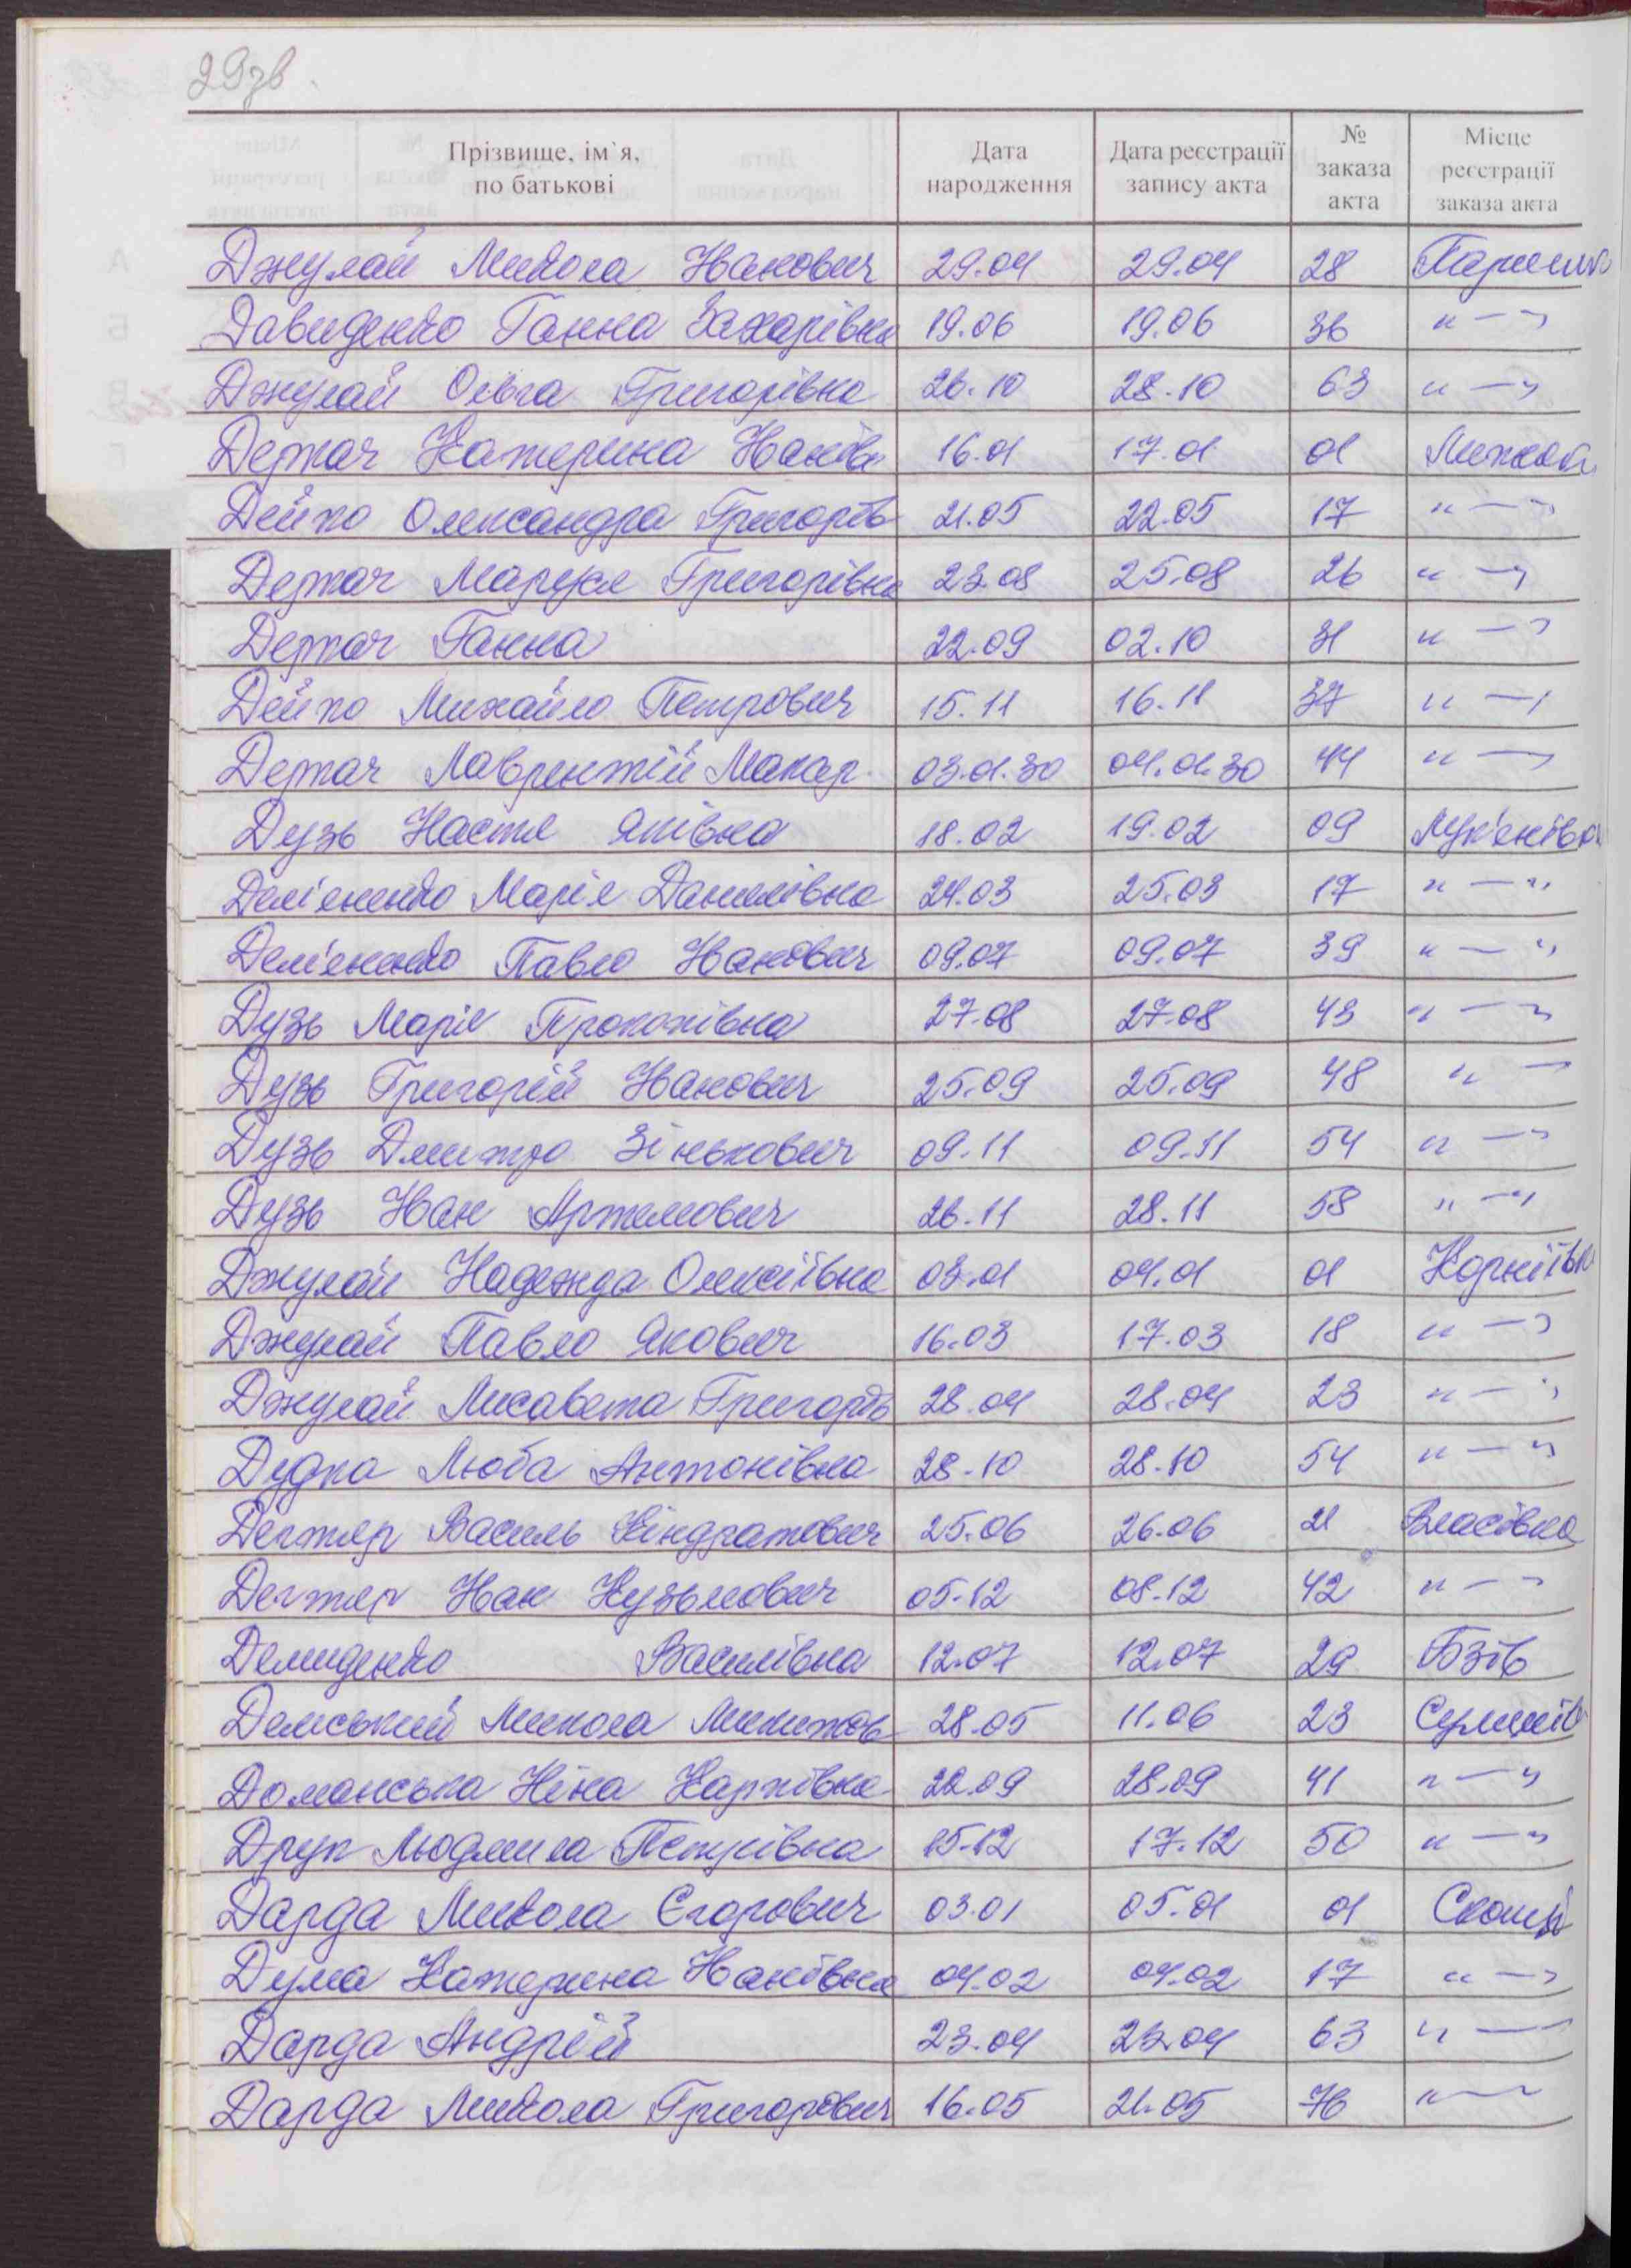 29зв.
Прізвище, ім`я, по батькові | Дата народження | Дата реєстрації запису акта | № заказа акта | Місце реєстрації заказа акта
Джулай Микола Іванович 29.04 29.04 28
Давиденко Ганна Захарівна 19.06 19.06 36 " — "
Джулай Ольга Григорівна 26.10 28.10 63 " — "
Деркач Катерина Іванів 16.01 17.01 01
Дейко Олександра Григорів 21.05 22.05 17 " — "
Деркач Маруся Григорівна 23.08 25.08 26 " — "
Деркач Ганна 22.09 02.10 31 " — "
Дейко Михайло Петрович 15.11 16.11 37 " — "
Деркач Лаврентій Макар. 03.01.30 04.01.30 44 " — "
Дузь Настя Яківна 18.02 19.02 09 Лук'янівка
Дем'яненко Марія Данилівна 24.03 25.03 17 " — "
Дем'яненко Павло Іванович 09.07 09.07 39 " — "
Дузь Марія Прокопівна 27.08 27.08 43 " — "
Дузь Григорій Іванович 25.09 25.09 48 " — "
Дузь Дмитро Зінькович 09.11 09.11 54 " — "
Дузь Іван Артемович 26.11 28.11 58 " — "
Джулай Надежда Олексіївна 03.01 04.01 01 Корніївка
Джулай Павло Якович 16.03 17.03 18 " — "
Джулай Лисавета Григорів 28.04 28.04 23 " — "
Дудка Люба Антонівна 28.10 28.10 54 " — "
Дегтяр Василь Кіндратович 25.06 26.06 21 Власівка
Дегтяр Іван Кузьмович 05.12 08.12 42 " — "
Демиденко Василівна 12.07 12.07 29 Бзів
Демський Микола Микитов 28.05 11.06 23
Доманська Ніна Карпівна 22.09 28.09 41 " — "
Друк Людмила Петрівна 15.12 17.12 50 " — "
Дарда Микола Єгорович 03.01 05.01 01
Дума Катерина Іванівна 04.02 04.02 17 " — "
Дарда Андрій 23.04 23.04 63 " — "
Дарда Микола Григорович 16.05 21.05 76 " — "